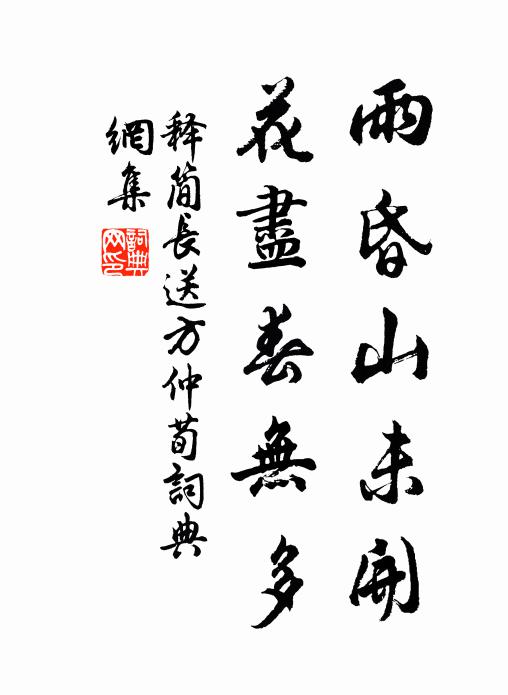 雨昏山未開
花盡春無多
释简長送方仲荀詞典
網集
詞典網印